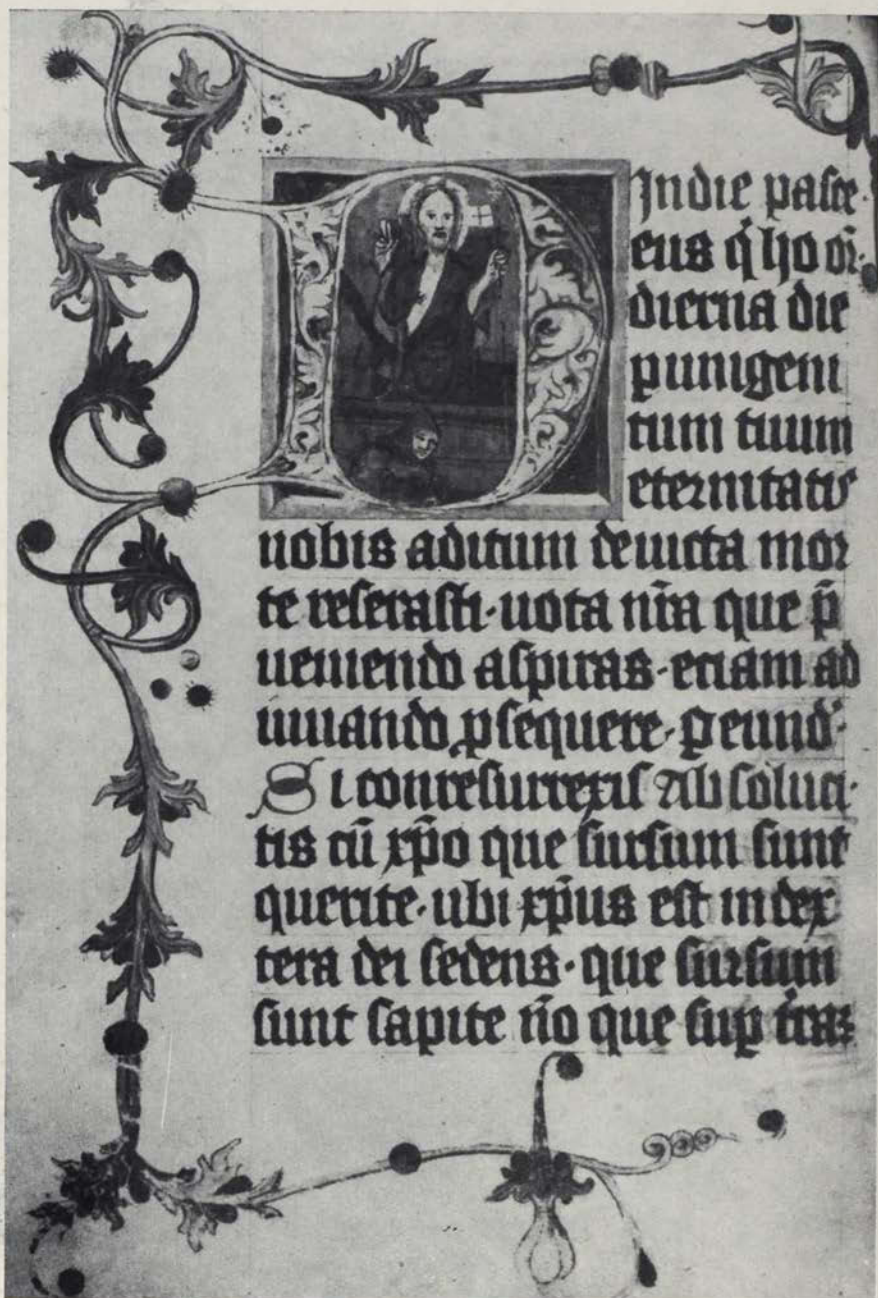 In die pasce·
D eus q̇ ho or̄·
dierna die
p unigeni
tum tuum
eternitatis
nobis aditum deuicta mor
te reserasti· uota nr̄a que p̄
ueniendo aspiras· eciam ad
iuuando ꝓsequere· ꝑ eund̄·
Si conresurrexis Ab soluci·
tis cū xp̄o que sursum sunt
querite· ubi xp̄us est in dex
tera dei sedens· que sursum
sunt sapite nō que suꝑ tr̄aꝫ